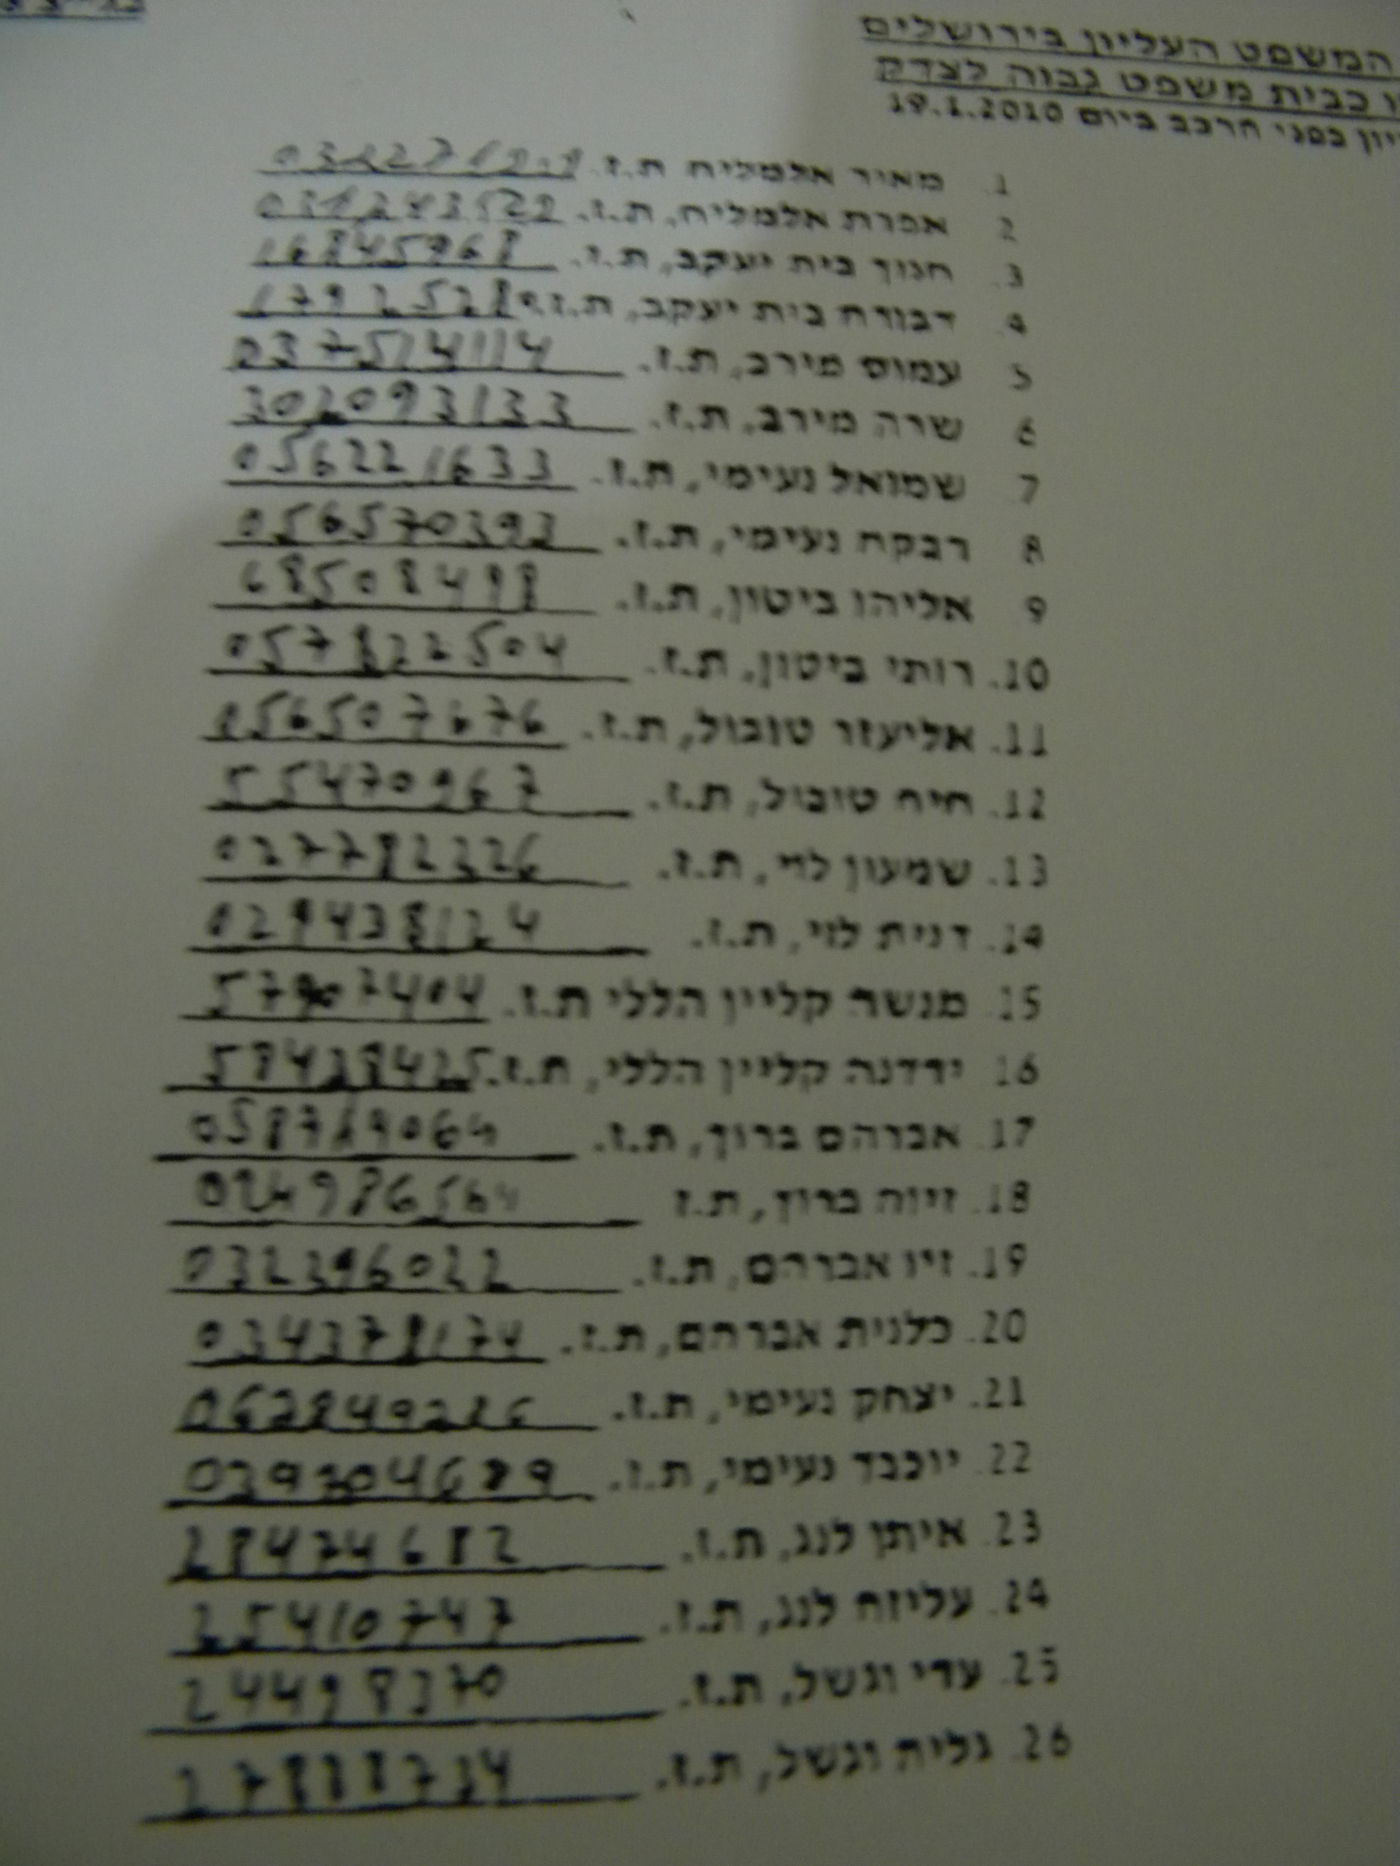 המשפט העליון בירושלים
כבית משפט גבוה לצדק
בפני הרכב ביום 19.1.2010
1. מאיר אלמליח ת.ז.
2. אפרת אלמליח, ת.ז.
3. חנוך בית יעקב, ת.ז. 16845968
4. דבורה בית יעקב, ת.ז.
5. עמוס מירב, ת.ז. 037514114
6. שרה מירב, ת.ז. 302093133
7. שמואל נעימי, ת.ז. 056221633
8. רבקה נעימי, ת.ז. 056570393
9. אליהו ביטון, ת.ז. 68508498
10. רותי ביטון, ת.ז. 057822504
11. אליעזר טובול, ת.ז. 056507676
12. חיה טובול, ת.ז. 55470967
13. שמעון לוי, ת.ז. 027782226
14. דנית לוי, ת.ז. 029438124
15. מנשה קליין הללי ת.ז. 57907404
16. ירדנה קליין הללי, ת.ז. 58428425
17. אברהם ברוך, ת.ז.
18. זיוה ברוך, ת.ז
19. זיו אברהם, ת.ז. 032296022
20. כלנית אברהם, ת.ז. 034378174
21. יצחק נעימי, ת.ז.
22. יוכבד נעימי, ת.ז. 029304689
23. איתן לנג, ת.ז. 28474682
24. עליזה לנג, ת.ז. 25410747
25. עדי וגשל, ת.ז. 24498370
26. גלית וגשל, ת.ז. 27888734